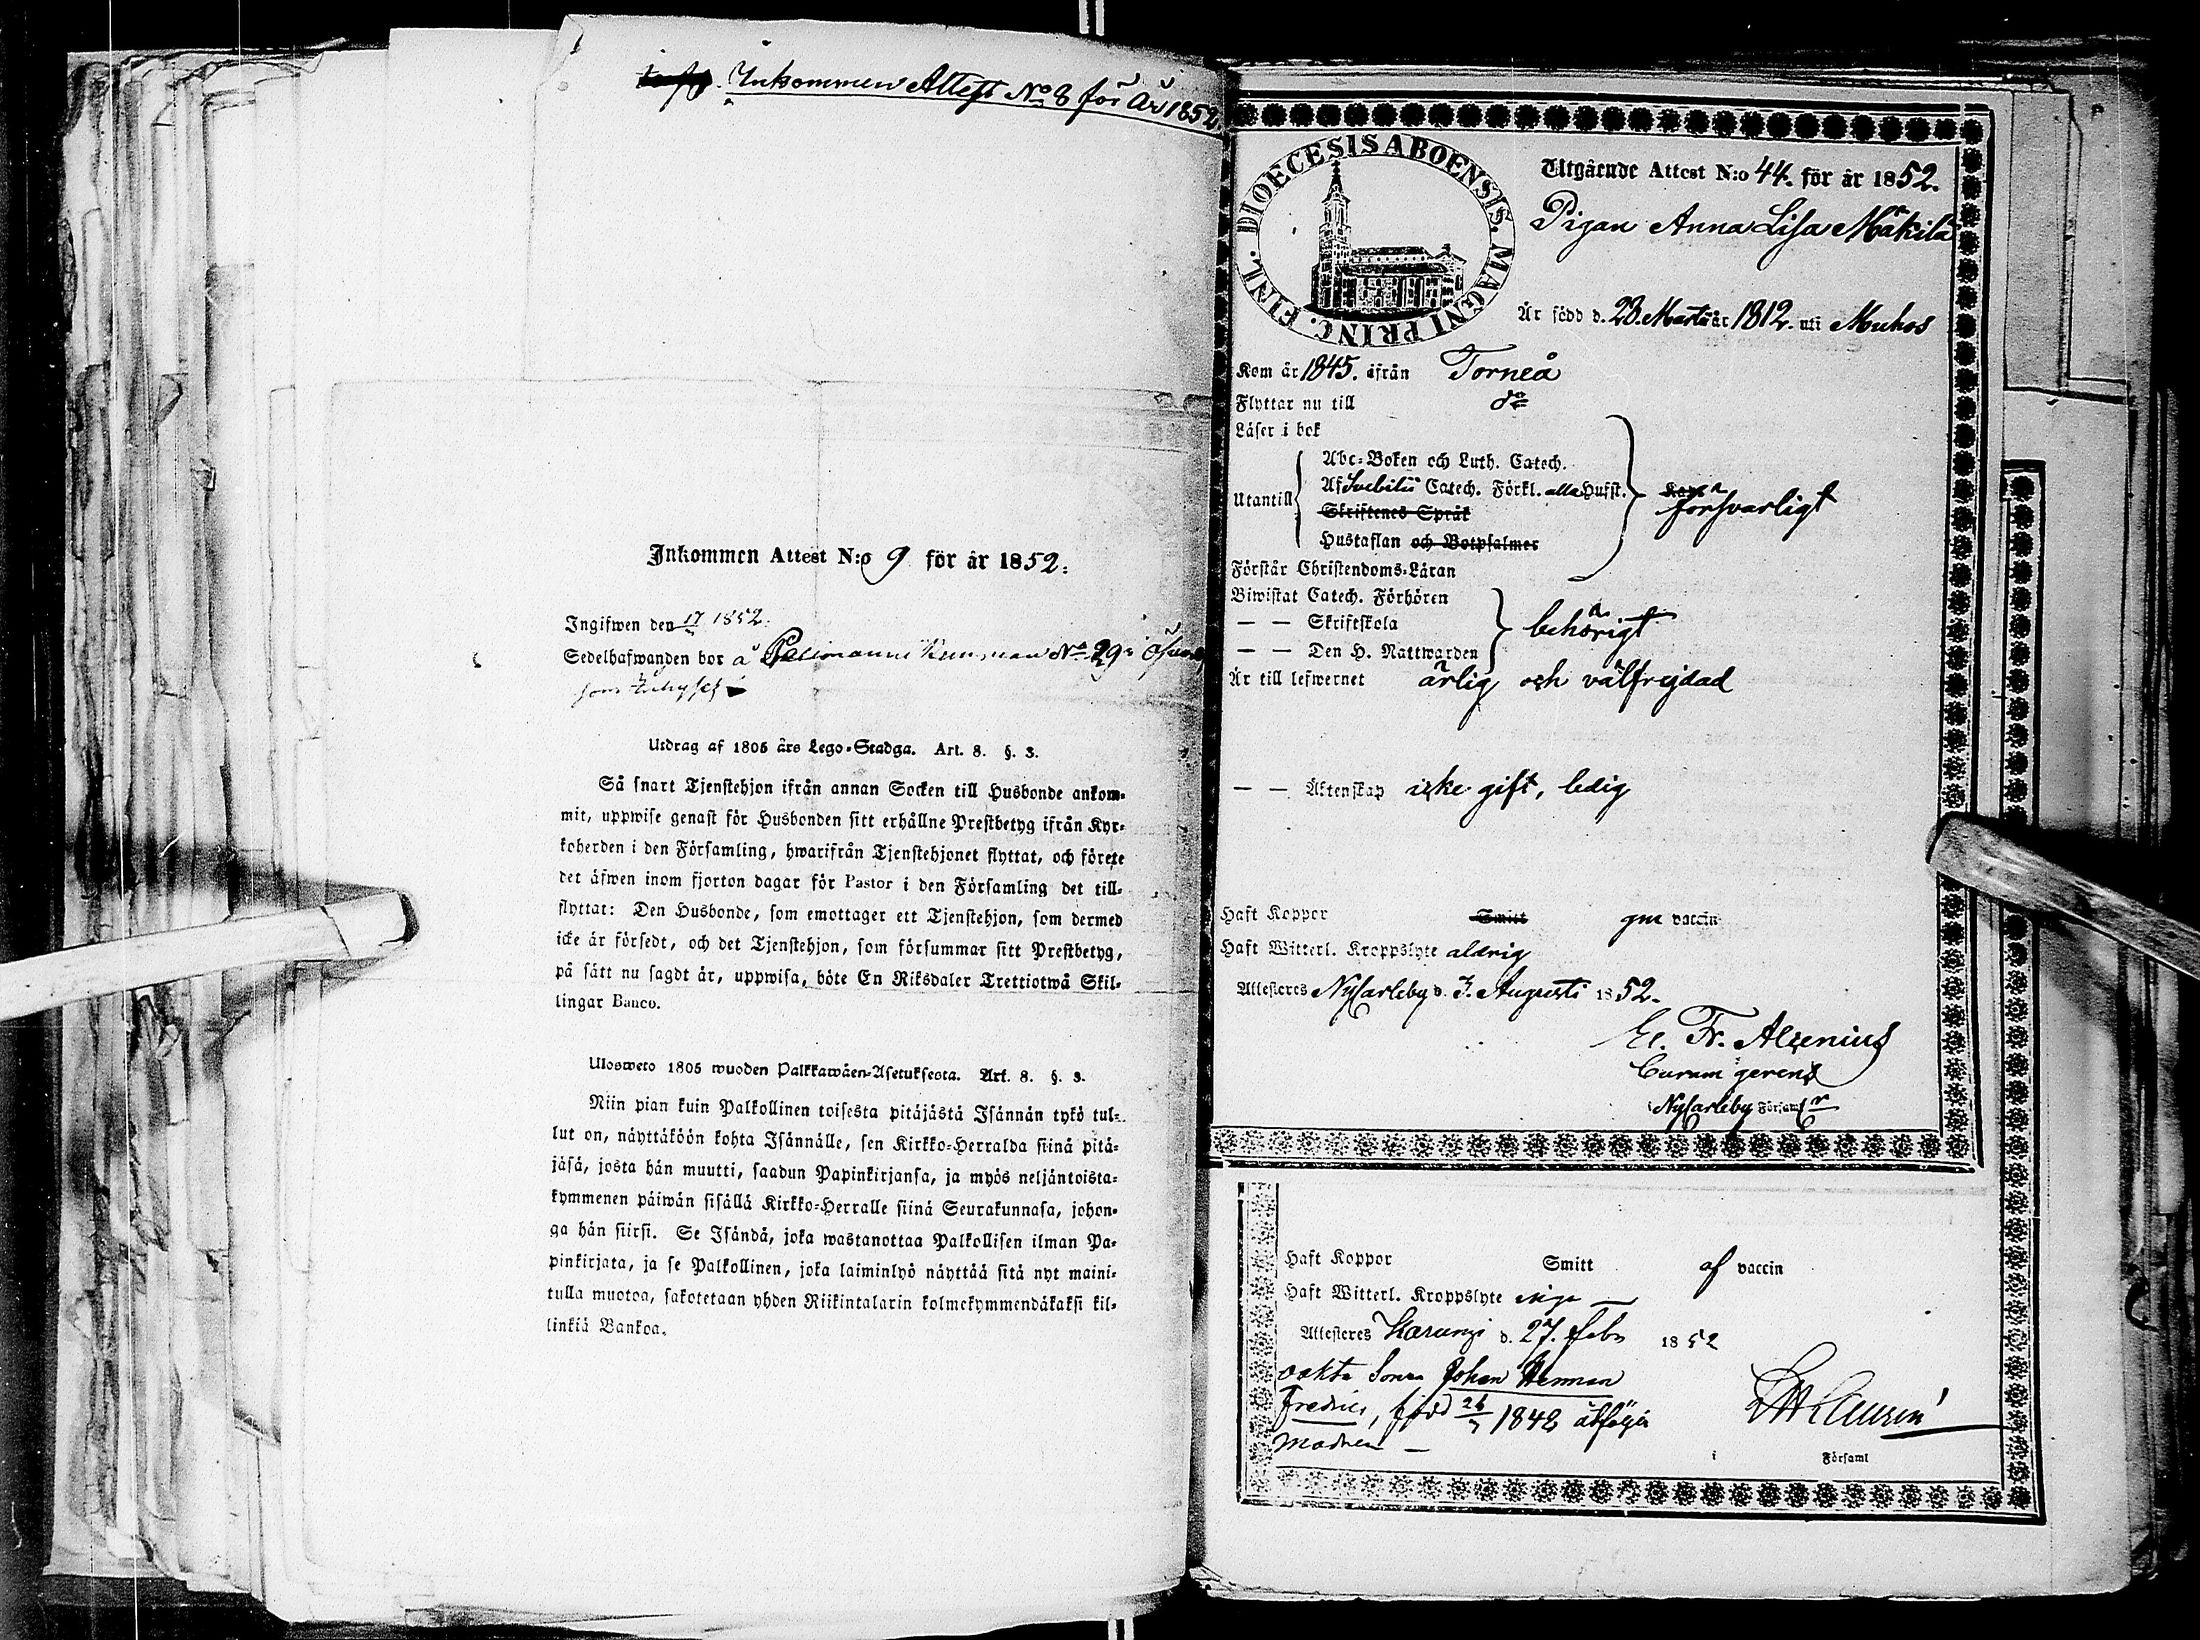 Inkommen Attest No 8 för År 1852.
Inkommen Attest N:o 9 för år 1852.
Ingifwen den 17 1852.
Sedelhafwanden bor å No 29
Utdrag af 1805 års Lego-Stadga. Art. 8. §. 3.
Så snart Tjenstehjon ifrån annan Socken till Husbonde ankom-
mit, uppwise genast för Husbonden sitt erhållne Prestbetyg ifrån Kyr-
koherden i den Församling, hwarifrån Tjenstehjonet flyttat, och förete
det äfwen inom fjorton dagar för Pastor i den Församling det till-
flyttat: Den Husbonde, som emottager ett Tjenstehjon, som dermed
icke är försedt, och det Tjenstehjon, som försummar sitt Prestbetyg,
på sätt nu sagdt är, uppwisa, böte En Riksdaler Trettiotwå Skil-
lingar Banco.
Ulosweto 1805 wuoden Palkkawäen-Asetuksesta. Art. 8. §. 3.
Niin pian kuin Palkollinen toisesta pitäjästä Isännän tykö tul-
lut on, näyttäköön kohta Isännälle, sen Kirkko-Herralda siinä pitä-
jäsä, josta hän muutti, saadun Papinkirjansa, ja myös neljäntoista-
kymmenen päiwän sisällä Kirkko-Herralle siinä Seurakunnasa, johon-
ga hän siirsi. Se Isändä, joka wastanottaa Palkollisen ilman Pa-
pinkirjata, ja se Palkollinen, joka laiminlyö näyttää sitä nyt maini-
tulla muotoa, sakotetaan yhden Riikintalarin kolmekymmendäkaksi kil-
linkiä Bankoa.
DIOECESIS ABOENSIS. MAGNI PRINC. FINL.
Utgående Attest N:o 44. för år 1852.
Pigan Anna Lisa Mäkilä
Är född d. 28. Martii år 1812. uti Muhos
Kom år 1845. ifrån Torneå
Flyttar nu till do
Läser i bok
Abc-Boken och Luth. Catech.
Utantill
Af Svebilii Catech. Förkl. alla Hufst.
Skriftenes Språk
försvarligt
Hustaflan och Botpsalmer
Förstår Christendoms-Läran
Biwistat Catech. Förhören
— — Skriftskola
behörigt
— — Den H. Nattwarden
Är till lefwernet ärlig och välfrejdad
— — Äktenskap icke gift, ledig
Haft Koppor Smitt gm vaccin
Haft Witterl. Kroppslyte aldrig
Attesteres Nycarleby d. 3. Augusti 1852.
El. Fr. Alcenius
Curam gerens
i Nycarleby Församl
Haft Koppor Smitt af vaccin
Haft Witterl. Kroppslyte
Attesteres Karungi d. 27. Febr 1852
Johan Herman
Fredric, född 26/7 1848 åtföljer
Modren —
Församl